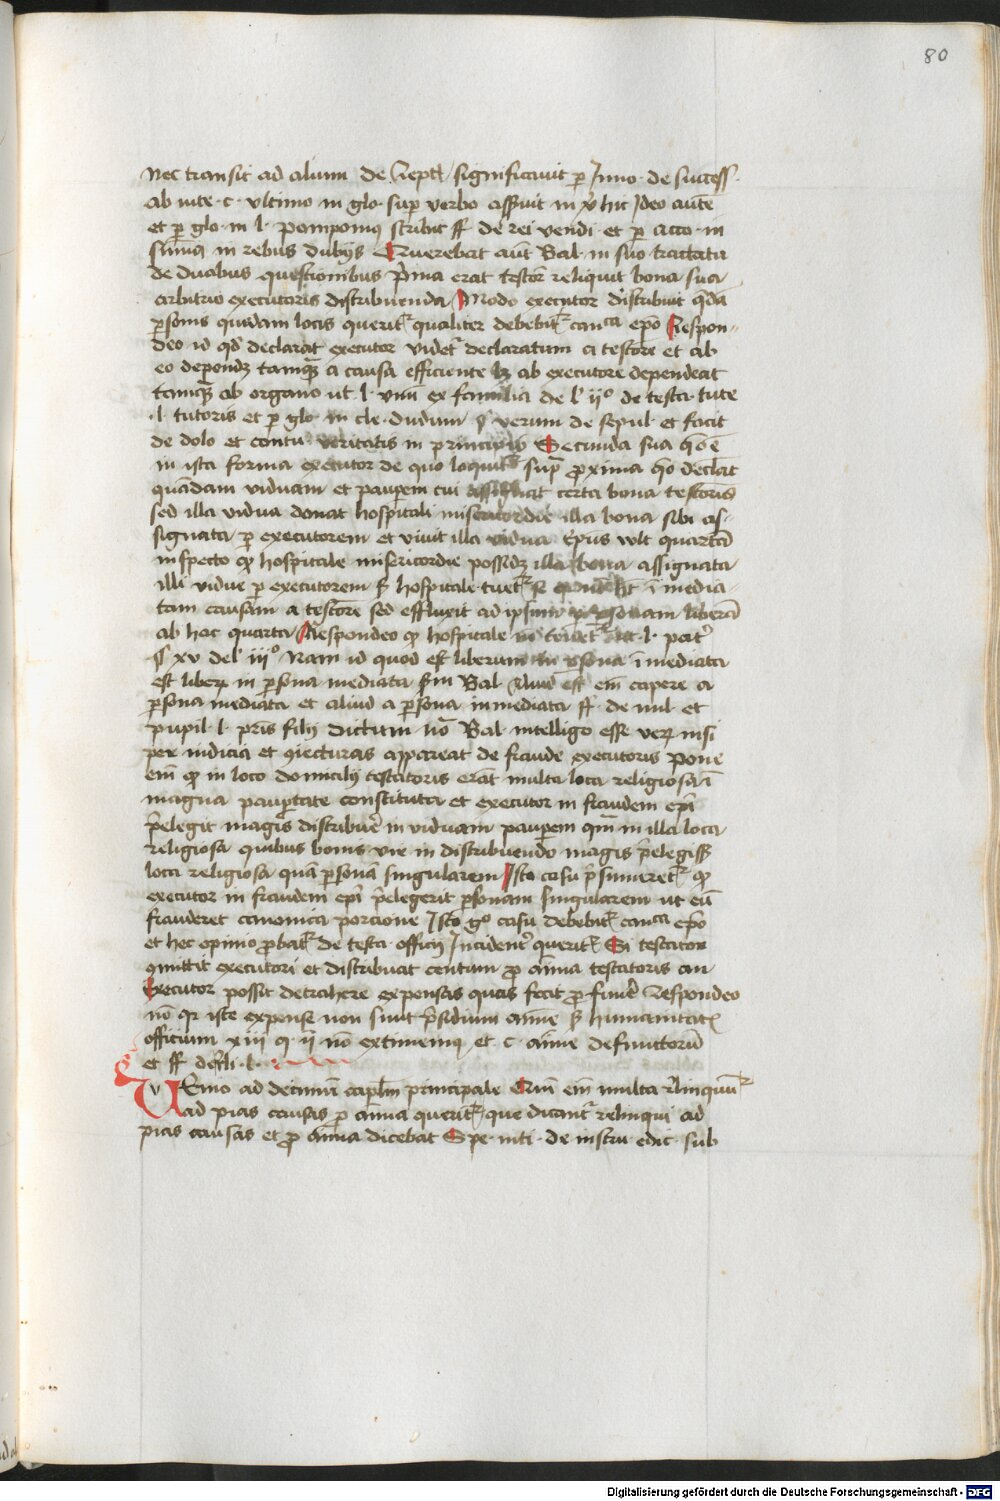 80
nec transit ad alium de rept significavit p Inno de success
ab inte c ultimo in glo sup verbo Ideo aute
et p glo in l pomponius scribit ff de rei vendi et p acco in
in rebus dubijs Querebat aut Bal in suo tractatu
de duabus questionibus Prima erat testor reliquit bona sua
arbitrio executoris distribuenda Modo executor distribuit qda
psonis quidam locis querit qualiter debebit canca epo Respon-
deo id qd declarat executor videt declaratum a testore et ab
eo dependz tamq a causa efficiente lz ab executore dependeat
tamq ab organo ut l unu ex familia de l ijo de testa tute
l tutoris et p glo in cle dudum verum de sepul et facit
de dolo et contu veritatis in principio Secunda sua qo e
in ista forma executor de quo loquit sup proxima qo declat
quandam viduam et pauperem cui assignat certa bona testoris
sed illa vidua donat hospitali misericordie illa bona sibi as-
signata p executorem et vivit illa vidua Epus volt quartam
inspecto q hospitale misericordie possidz illa bona assignata
illi vidue p executorem hospitale tuet se media-
tam causam a testore sed effluxit ad ipsum liberam
ab hac quarta Respondeo q hospitale l
xv de l iijo Nam id quod est liberum in psona imediata
est liberum in psona mediata fm Bal Aliud est em capere a
psona mediata et aliud a psona inmediata ff de vul et
pupil l pris filij dictum Bal intelligo esse veru nisi
per indicia et coniecturas appareat de fraude executoris pone
em q in loco domicilij testatoris erat multa loca religiosa i
magna paupertate constituta et executor in fraudem epi
prelegit magis distribuere in viduam pauperem qm in illa loca
religiosa quibus bonis vir in distribuendo magis prelegiss
loca religiosa quam psonam singularem Isto casu presumeret q
executor in fraudem epi prelegerit psonam singularem ut eum
frauderet canonica porcione Isto go casu debebit canca epo
et hec opinio probat de testa officij Incident querit Si testator
comittit executori et distribuat centum pro anima testatoris an
Executor possit detrahere expensas quas fecit pro funere Respondeo
no qr iste expense non sunt presidium anime humanitatis
officium xiij q ij no extimemus et c anime defunctorum
et ff l
Venio ad decimam capitulum principale Cum em multa relinquunt
ad pias causas p anima querit que dicant relinqui ad
pias causas et pro anima dicebat Spe inti de instru edic sub
Digitalisierung gefördert durch die Deutsche Forschungsgemeinschaft - DFG